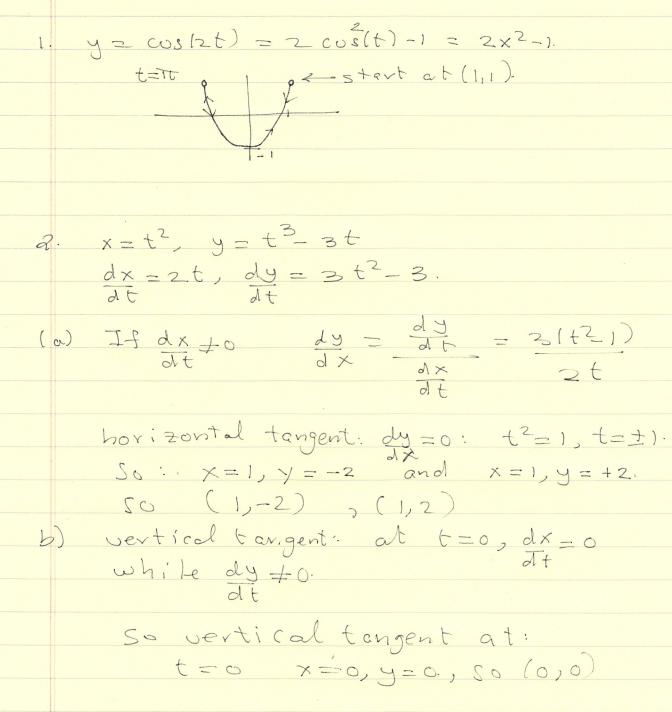 1. y = cos(2t) = 2 cos²(t) - 1 = 2x² - 1.
t=π ← start at (1,1).
-1
2. x = t², y = t³ - 3t
dx/dt = 2t, dy/dt = 3t² - 3.
(a) If dx/dt ≠ 0 dy/dx = (dy/dt)/(dx/dt) = 3(t²-1)/2t
horizontal tangent: dy/dx = 0: t² = 1, t = ±1.
So: x = 1, y = -2 and x = 1, y = +2.
so (1,-2), (1,2)
b) vertical tangent: at t = 0, dx/dt = 0
while dy/dt ≠ 0.
So vertical tangent at:
t = 0 x = 0, y = 0, so (0,0)